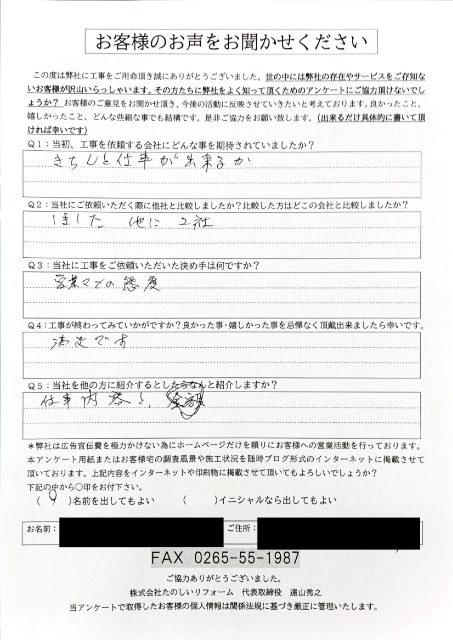 お客様のお声をお聞かせください
この度は弊社に工事をご用命頂き誠にありがとうございました。世の中には弊社の存在やサービスをご存知な
いお客様が沢山いらっしゃいます。その方たちに弊社をよく知って頂くためのアンケートにご協力頂けないでし
ょうか？お客様のご意見をお聞かせ頂き、今後の活動に反映させていきたいと考えております。良かったこと、
嬉しかったこと、どんな些細な事でも結構です。是非ご協力をお願い致します。（出来るだけ具体的に書いて頂
ければ幸いです）
Q1：当初、工事を依頼する会社にどんな事を期待されていましたか？
きちんと仕事が出来るか
Q2：当社にご依頼いただく際に他社と比較しましたか？比較した方はどこの会社と比較しましたか？
はした 他に2社
Q3：当社に工事をご依頼いただいた決め手は何ですか？
営業マンの態度
Q4：工事が終わってみていかがですか？良かった事・嬉しかった事を忌憚なく頂戴出来ましたら幸いです。
満足です
Q5：当社を他の方に紹介するとしたらなんと紹介しますか？
仕事内容と、金額
＊弊社は広告宣伝費を極力かけない為にホームページだけを頼りにお客様への営業活動を行っております。
本アンケート用紙またはお客様宅の調査風景や施工状況を随時ブログ形式のインターネットに掲載させて
頂いております。上記内容をインターネットや印刷物に掲載させて頂いてもよろしいでしょうか？
下記の中から○印をお付下さい。
（○）名前を出してもよい （ ）イニシャルなら出してもよい
お名前： ご住所：
FAX 0265-55-1987
ご協力ありがとうございました。
株式会社たのしいリフォーム 代表取締役 遠山秀之
当アンケートで取得したお客様の個人情報は関係法規に基づき厳正に管理いたします。